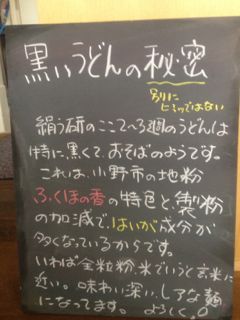 黒いうどんの秘密
別に
ヒミツではない
絹う研のここ2〜3週のうどんは
特に黒くて、おそばのようです。
これは、小野市の地粉
ふくほの香の特色と、製粉
の加減で、はいが成分が
多くなっているからです。
いわば全粒粉、米でいうと玄米に
近い。味わい深い、レアな麺
になってます。よろしく。